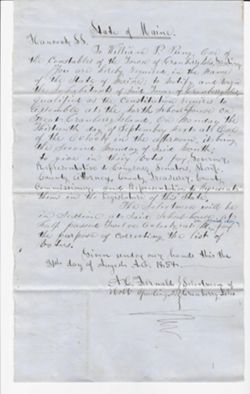 State of Maine.
Hancock SS.
To William P. Preble, One of
the Constables of the Town of Cranberry Isles, Greeting
You are hereby required in the name
of the State of Maine, to notify and warn
the Inhabitants of said Town of Cranberry Isles
qualified as the Constitution requires to
assemble at the schoolhouse on
Great Cranberry Island, On Monday the
Thirteenth day of September next at One
of the Clock in the afternoon it being
the Second Monday of said Month,
to give in their Votes for Governor
Representative to Congress, Senators, Sheriff,
County Attorney, County Treasurer, County
Commissioner, and Representative to Represent
them in the Legislature of this State.
The Selectmen will be
in session at said School house at
half passed Twelve Oclock on the day
the purpose of correcting the list of
Voters.
Given under our hands this the
day of August A.D. 185
Selectmen of
Cranberry Isles